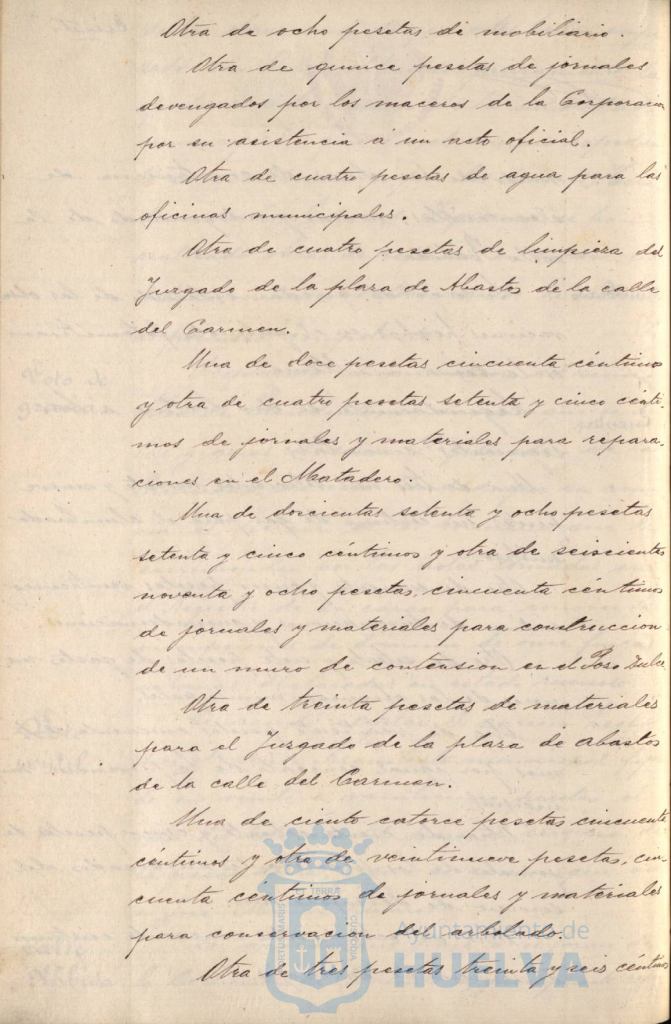 Otra de ocho pesetas de mobiliario.
Otra de quince pesetas de jornales
devengados por los maceros de la Corporacion
por su asistencia á un acto oficial.
Otra de cuatro pesetas de agua para las
oficinas municipales.
Otra de cuatro pesetas de limpieza del
Juzgado de la plaza de Abastos de la calle
del Carmen.
Una de doce pesetas cincuenta céntimos
y otra de cuatro pesetas setenta y cinco cénti-
mos de jornales y materiales para repara-
ciones en el Matadero.
Una de doscientas setenta y ocho pesetas
setenta y cinco céntimos y otra de seiscientas
noventa y ocho pesetas, cincuenta céntimos
de jornales y materiales para construccion
de un muro de contension en el Poso Dulce.
Otra de treinta pesetas de materiales
para el Juzgado de la plaza de abastos
de la calle del Carmen.
Una de ciento catorce pesetas cincuenta
céntimos y otra de veintinueve pesetas, cin-
cuenta céntimos de jornales y materiales
para conservacion del arbolado.
Otra de tres pesetas treinta y seis céntimos
Ayuntamiento de
HUELVA
PORTUS MARIS ET TERRÆ CUSTODIA